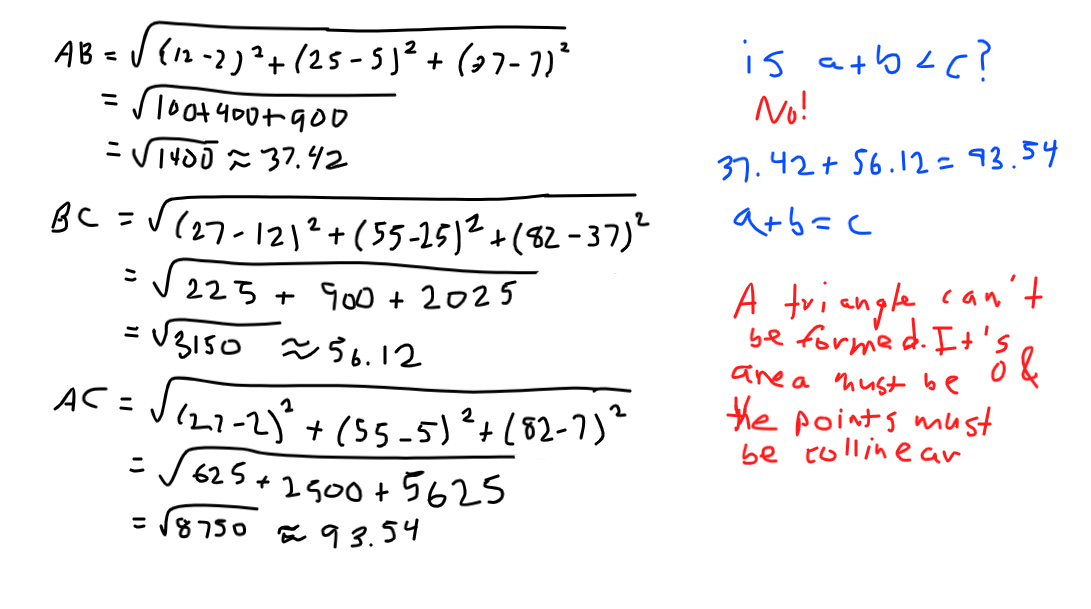 AB = √((12-2)²+(25-5)²+(37-7)²
= √100+400+900
= √1400 ≈ 37.42
BC = √(27-12)²+(55-25)²+(82-37)²
= √225 + 900 + 2025
= √3150 ≈ 56.12
AC = √(27-2)²+(55-5)²+(82-7)²
= √625+2500+5625
= √8750 ≈ 93.54
is a+b<c?
No!
37.42+56.12=93.54
a+b=c
A triangle can't
be formed. It's
area must be 0 &
the points must
be collinear